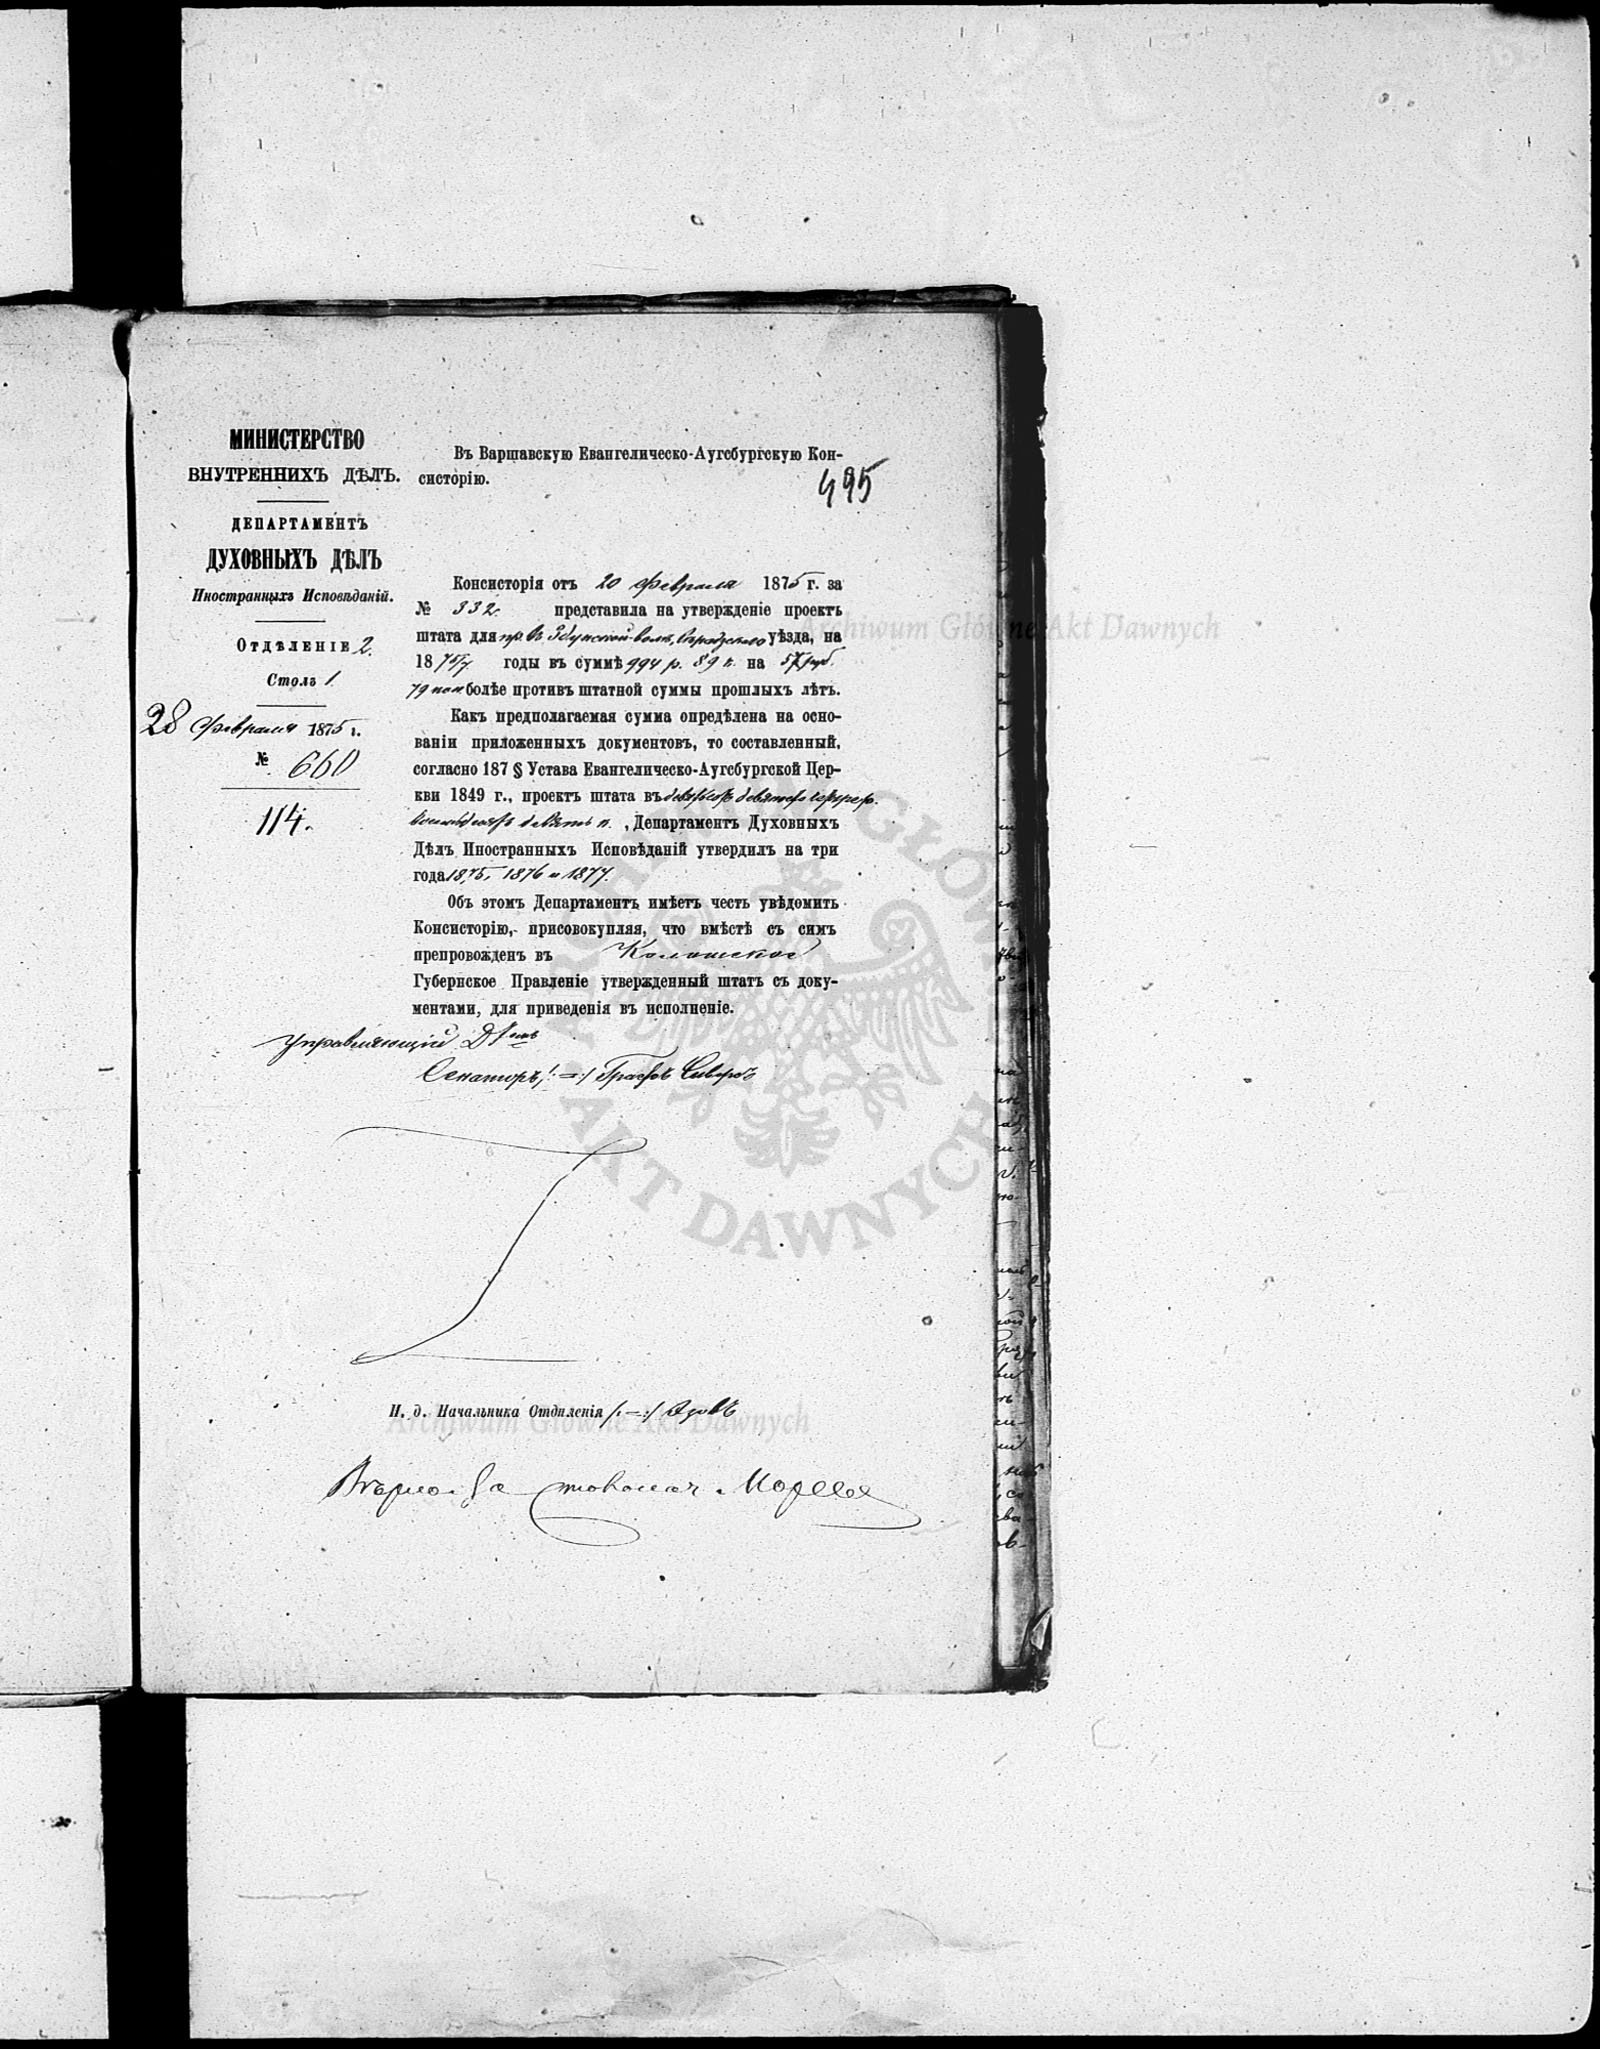 МИНИСТЕРСТВО
ВНУТРЕННИХЪ ДѢЛЪ.
ДЕПАРТАМЕНТЪ
ДУХОВНЫХЪ ДѢЛЪ
Иностранныхъ Исповѣданій.
ОТДѢЛЕНІЕ 2.
Столъ 1.
28 февраля 1875 г.
№ 660
114.
Въ Варшавскую Евангелическо-Аугсбургскую Кон-
систорію.
495
Консисторія отъ 20 февраля 1875 г. за
№ 332. представила на утвержденіе проектъ
штата для въ уѣзда, на
18 75/7 годы въ суммѣ 994 р. 89 к. на 57 руб.
79 коп болѣе противъ штатной суммы прошлыхъ лѣтъ.
Какъ предполагаемая сумма опредѣлена на осно-
ваніи приложенныхъ документовъ, то составленный,
согласно 187 § Устава Евангелическо-Аугсбургской Цер-
кви 1849 г., проектъ штата въ девятьсотъ девяносто четыре р.
восемьдесятъ девять к. , Департаментъ Духовныхъ
Дѣлъ Иностранныхъ Исповѣданій утвердилъ на три
года 1875, 1876 и 1877.
Объ этомъ Департаментъ имѣетъ честь увѣдомить
Консисторію, присовокупляя, что вмѣстѣ съ симъ
препровожденъ въ Калишское
Губернское Правленіе утвержденный штатъ съ доку-
ментами, для приведенія въ исполненіе.
Управляющій
Сенаторъ, /:—:/ Графъ Сиверсъ
И. д. Начальника Отдѣленія /:—:/ Азовъ
Вѣрно. За
Archiwum Główne Akt Dawnych
Archiwum Główne Akt Dawnych
ARCHIWUM GŁÓWNE
AKT DAWNYCH